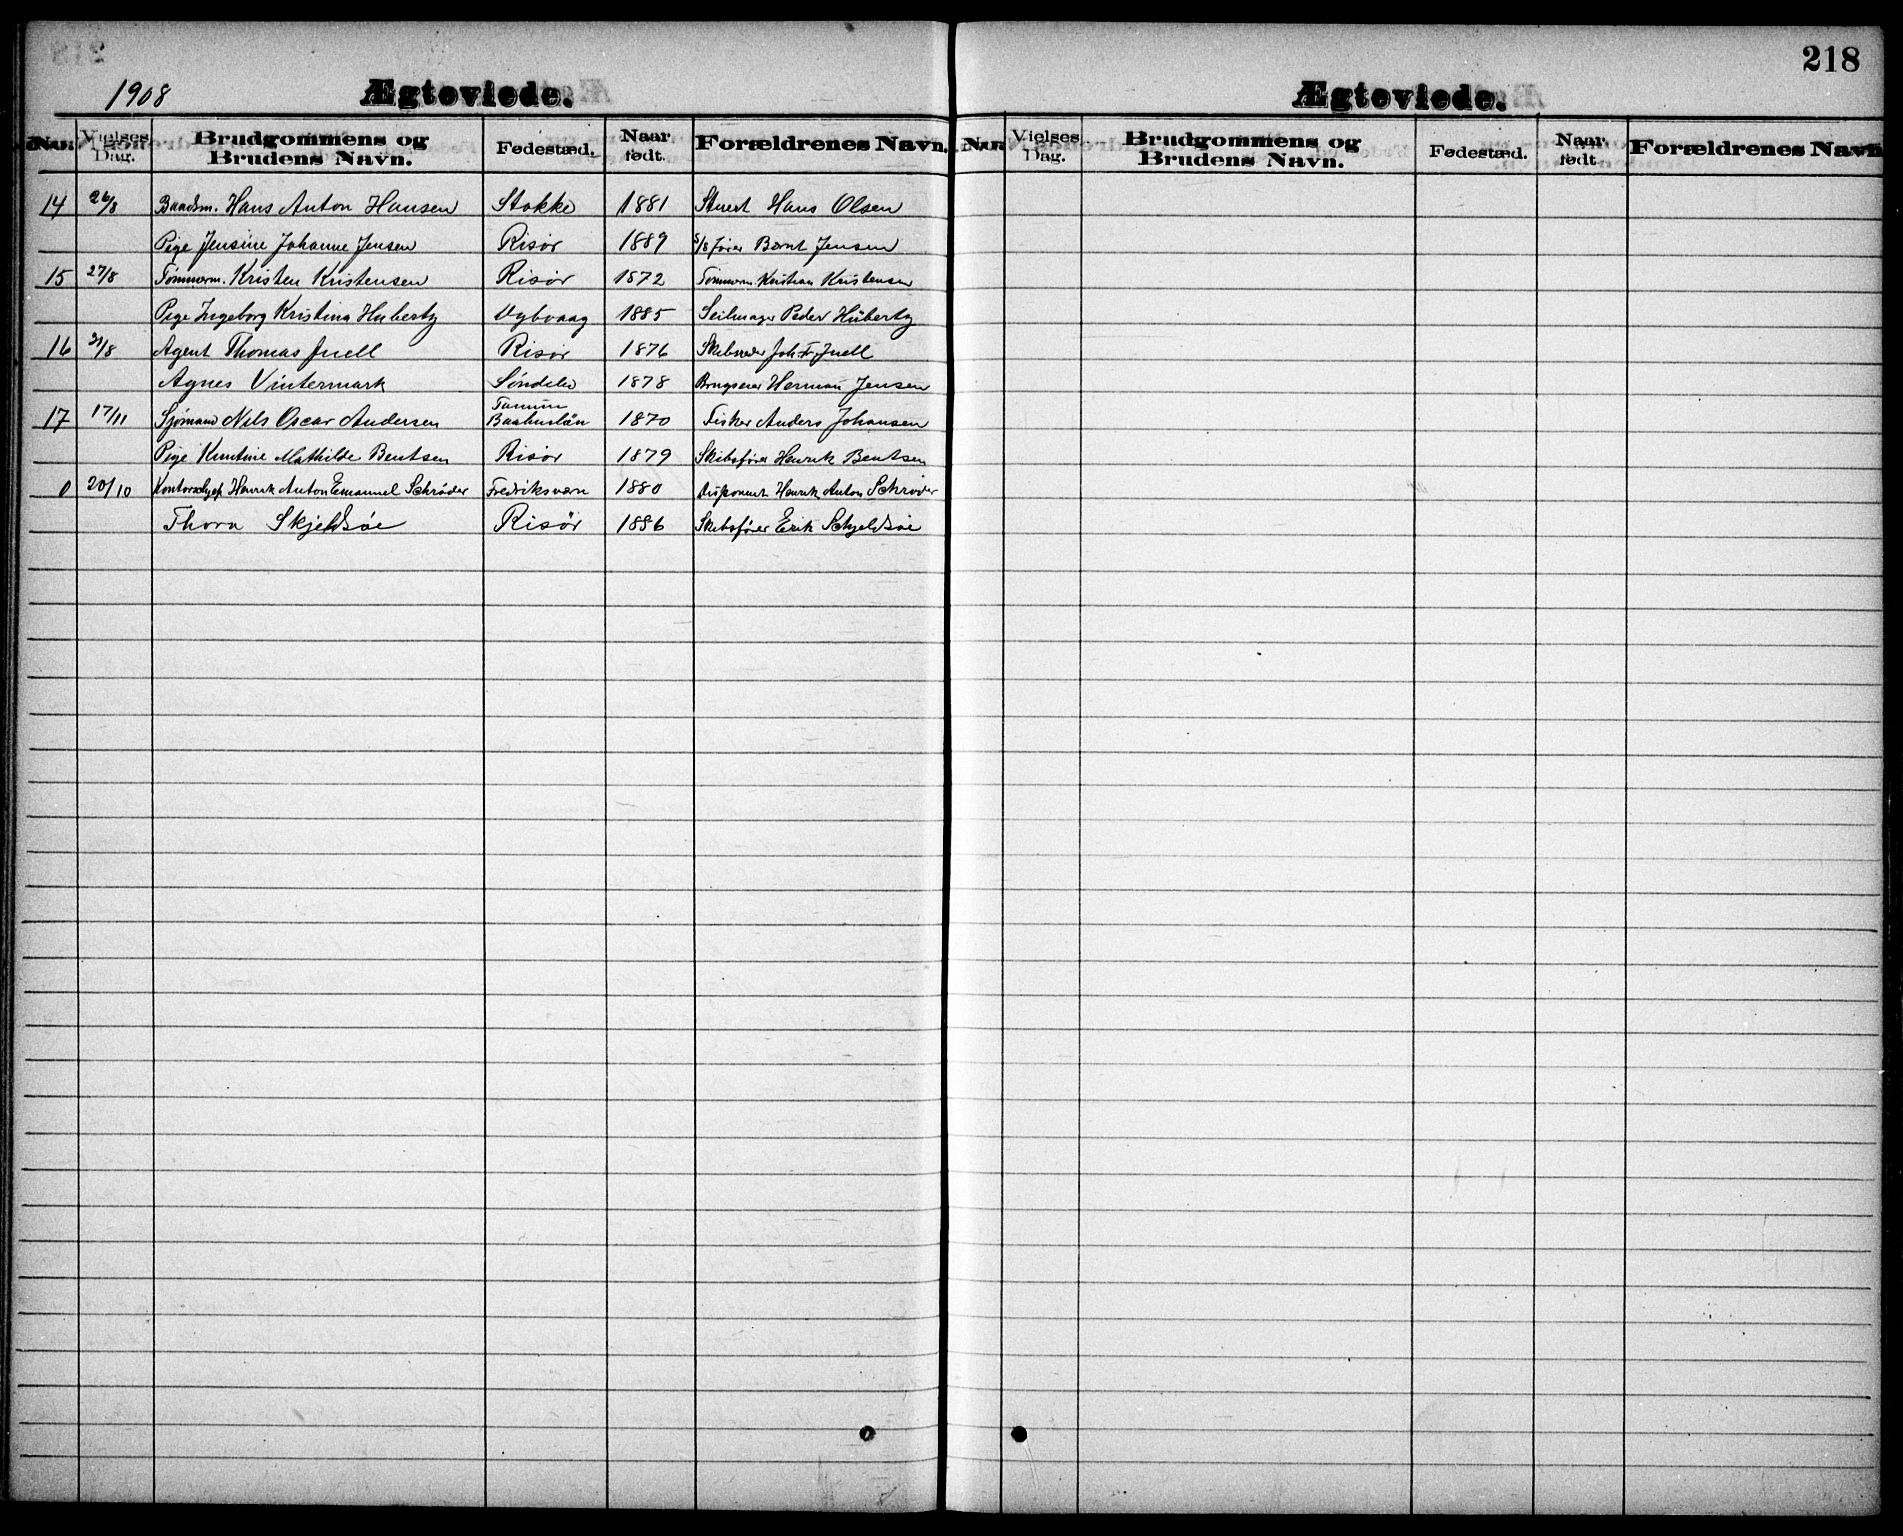 218
1908 Ægteviede.
Nr. Vielses Dag. Brudgommens og Brudens Navn. Fødested. Naar født. Forældrenes Navn.
14 26/8 Baadsm. Hans Anton Hansen Stokke 1881 Stuert Hans Olsen
Pige Jensine Johanne Jensen Risør 1889 S/S fører Bernt Jensen
15 27/8 Tømmerm. Kristen Kristensen Risør 1872 Tømmerm. Kristian Kristensen
Pige Ingeborg Kristina Huberty Dybvaag 1885 Seilmager Peder Hüberty
16 31/8 Agent Thomas Juell Risør 1876 Skibsreder Joh. Fr. Juell
Agnes Vintermark Søndeler 1878 Brugseier Herman Jensen
17 17/11 Sjømand Nils Oscar Andersen Tanum Baahuslän 1870 Fisker Anders Johansen
Pige Kristine Mathilde Bentsen Risør 1879 Skibsfører Henrik Bentsen
0 20/10 Kontorchef Henrik Anton Emanuel Schrøder Fredriksværn 1880 Disponent Henrik Anton Schrøder
Thora Skjeldsøe Risør 1886 Skibsfører Erik Schjeldsøe
Ægteviede. 218
Nr. Vielses Dag. Brudgommens og Brudens Navn. Fødestæd. Naar født Forældrenes Navn